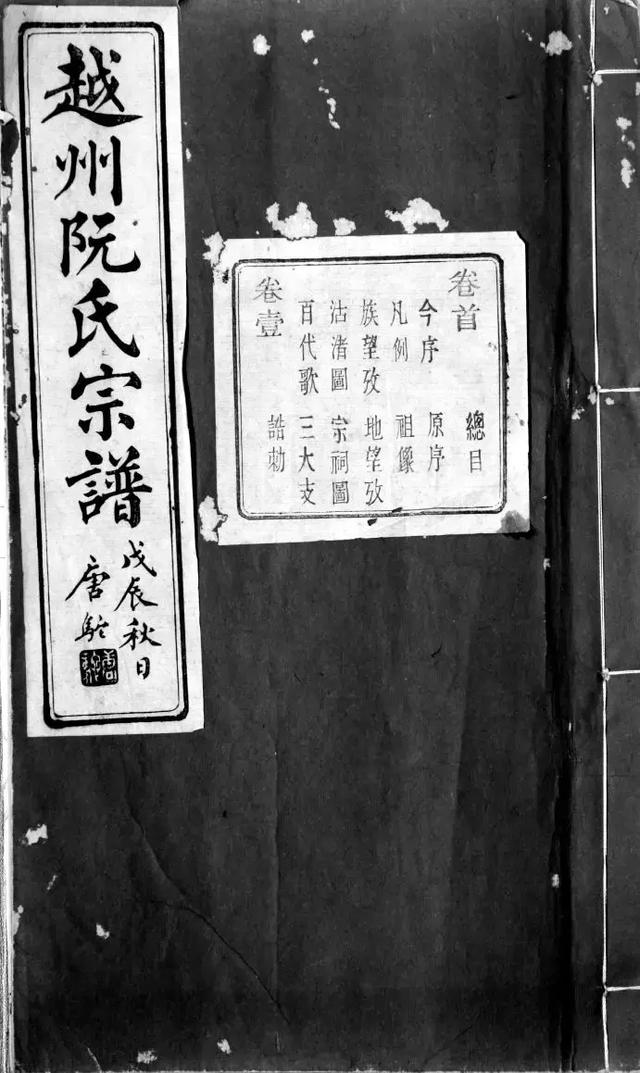 越州阮氏宗譜
戊辰秋日
唐駝
卷首 總目
今序 原序
凡例 祖像
族望攷 地望攷
沽渚圖 宗祠圖
百代歌 三大支
卷壹 誥勅